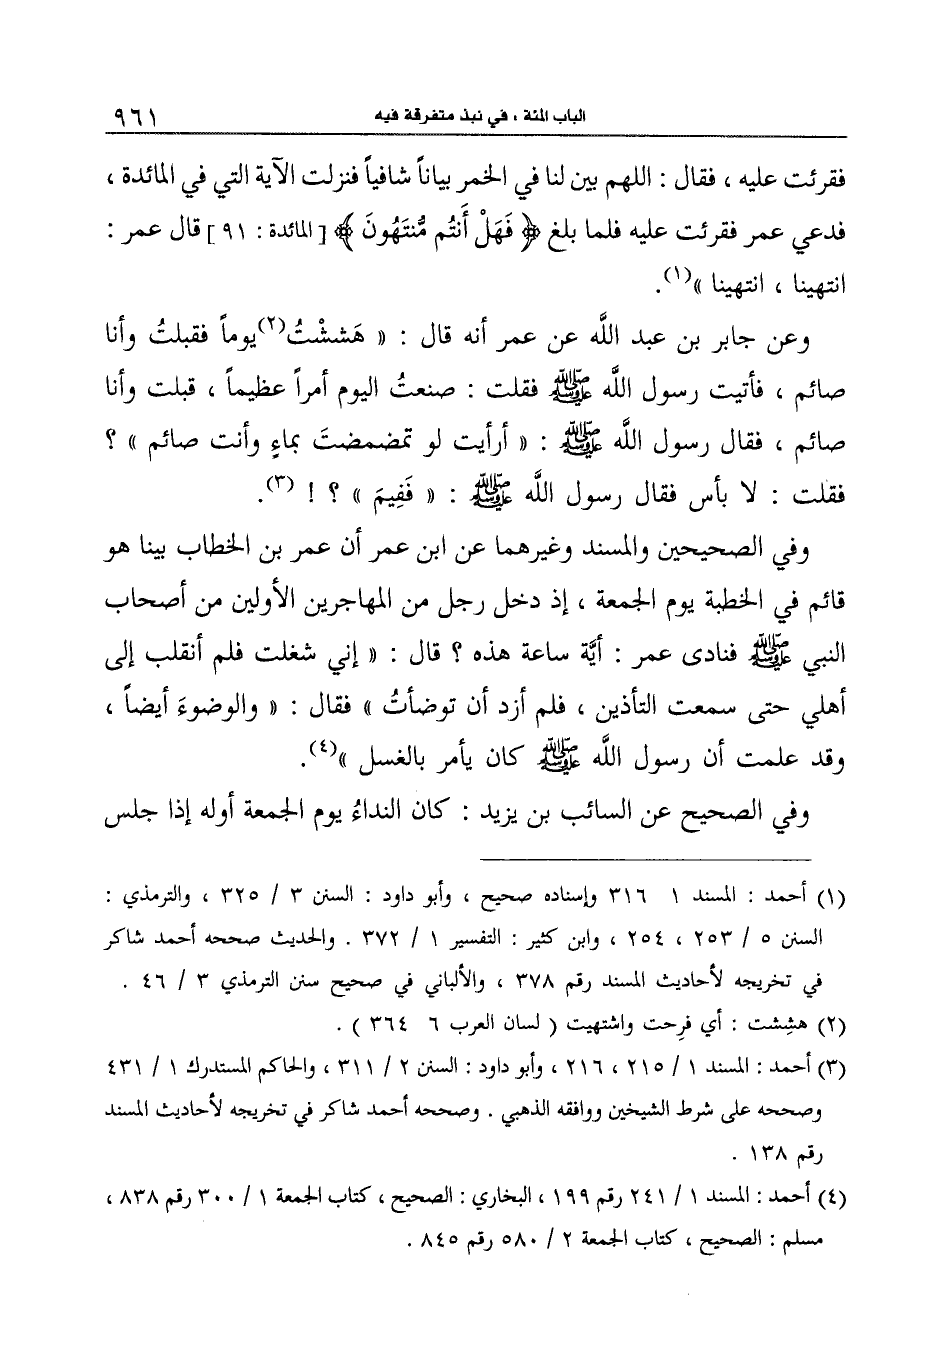 الباب المئة ، في نبذ متفرقة فيه ٩٦١
فقرئت عليه ، فقال : اللهم بين لنا في الخمر بياناً شافياً فنزلت الآية التي في المائدة ،
فدعي عمر فقرئت عليه فلما بلغ ﴿ فَهَلْ أَنتُم مُّنتَهُونَ ﴾ [ المائدة : ٩١ ] قال عمر :
انتهينا ، انتهينا »(١).
وعن جابر بن عبد اللَّه عن عمر أنه قال : « هَششْتُ(٢)يوماً فقبلتُ وأنا
صائم ، فأتيت رسول اللَّه ﷺ فقلت : صنعتُ اليوم أمراً عظيماً ، قبلت وأنا
صائم ، فقال رسول اللَّه ﷺ : « أرأيت لو تمضمضتَ بماءٍ وأنت صائم » ؟
فقلت : لا بأس فقال رسول اللَّه ﷺ : « فَفِيمَ » ؟ ! (٣).
وفي الصحيحين والمسند وغيرهما عن ابن عمر أن عمر بن الخطاب بينا هو
قائم في الخطبة يوم الجمعة ، إذ دخل رجل من المهاجرين الأولين من أصحاب
النبي ﷺ فنادى عمر : أيَّة ساعة هذه ؟ قال : « إني شغلت فلم أنقلب إلى
أهلي حتى سمعت التأذين ، فلم أزد أن توضأتُ » فقال : « والوضوءَ أيضاً ،
وقد علمت أن رسول اللَّه ﷺ كان يأمر بالغسل »(٤).
وفي الصحيح عن السائب بن يزيد : كان النداءُ يوم الجمعة أوله إذا جلس
(١) أحمد : المسند ١ ٣١٦ وإسناده صحيح ، وأبو داود : السنن ٣ / ٣٢٥ ، والترمذي :
السنن ٥ / ٢٥٣ ، ٢٥٤ ، وابن كثير : التفسير ١ / ٣٧٢ . والحديث صححه أحمد شاكر
في تخريجه لأحاديث المسند رقم ٣٧٨ ، والألباني في صحيح سنن الترمذي ٣ / ٤٦ .
(٢) هشِشت : أي فرِحت واشتهيت ( لسان العرب ٦ ٣٦٤ ) .
(٣) أحمد : المسند ١ / ٢١٥ ، ٢١٦ ، وأبو داود : السنن ٢ / ٣١١ ، والحاكم المستدرك ١ / ٤٣١
وصححه على شرط الشيخين ووافقه الذهبي . وصححه أحمد شاكر في تخريجه لأحاديث المسند
رقم ١٣٨ .
(٤) أحمد : المسند ١ / ٢٤١ رقم ١٩٩ ، البخاري : الصحيح ، كتاب الجمعة ١ / ٣٠٠ رقم ٨٣٨ ،
مسلم : الصحيح ، كتاب الجمعة ٢ / ٥٨٠ رقم ٨٤٥ .